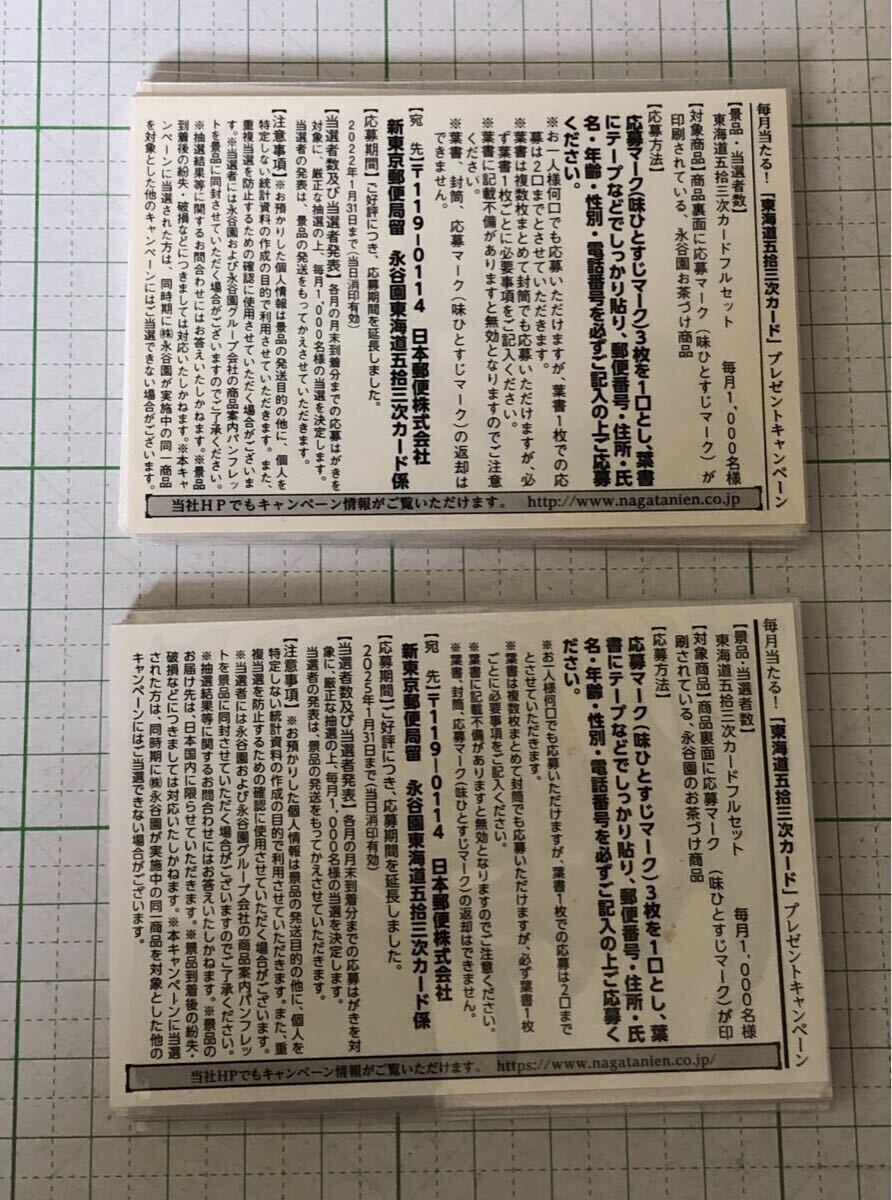 毎月当たる！「東海道五拾三次カード」プレゼントキャンペーン
【景品・当選者数】
東海道五拾三次カードフルセット　毎月1,000名様
【対象商品】商品裏面に応募マーク（味ひとすじマーク）が
印刷されている、永谷園お茶づけ商品
【応募方法】
応募マーク（味ひとすじマーク）3枚を1口とし、葉書
にテープなどでしっかり貼り、郵便番号・住所・氏
名・年齢・性別・電話番号を必ずご記入の上ご応募
ください。
※お一人様何口でも応募いただけますが、葉書1枚での応
募は2口までとさせていただきます。
※葉書は複数枚まとめて封筒でも応募いただけますが、必
ず葉書1枚ごとに必要事項をご記入ください。
※葉書に記載不備がありますと無効となりますのでご注意
ください。
※葉書、封筒、応募マーク（味ひとすじマーク）の返却は
できません。
【宛　先】〒119-0114　日本郵便株式会社
新東京郵便局留　永谷園東海道五拾三次カード係
【応募期間】ご好評につき、応募期間を延長しました。
2022年1月31日まで（当日消印有効）
【当選者数及び当選者発表】各月の月末到着分までの応募はがきを
対象に、厳正な抽選の上、毎月1,000名様の当選を決定します。
当選者の発表は、景品の発送をもってかえさせていただきます。
【注意事項】※お預かりした個人情報は景品の発送目的の他に、個人を
特定しない統計資料の作成の目的で利用させていただきます。また、
重複当選を防止するための確認に使用させていただく場合がございま
す。※当選者には永谷園および永谷園グループ会社の商品案内パンフレッ
トを景品に同封させていただく場合がございますのでご了承ください。
※抽選結果等に関するお問合わせにはお答えいたしかねます。※景品
到着後の紛失・破損などにつきましては対応いたしかねます。※本キャ
ンペーンに当選された方は、同時期に㈱永谷園が実施中の同一商品
を対象とした他のキャンペーンにはご当選できない場合がございます。
当社HPでもキャンペーン情報がご覧いただけます。 http://www.nagatanien.co.jp
毎月当たる！「東海道五拾三次カード」プレゼントキャンペーン
【景品・当選者数】
東海道五拾三次カードフルセット　毎月1,000名様
【対象商品】商品裏面に応募マーク（味ひとすじマーク）が印
刷されている、永谷園のお茶づけ商品
【応募方法】
応募マーク（味ひとすじマーク）3枚を1口とし、葉
書にテープなどでしっかり貼り、郵便番号・住所・氏
名・年齢・性別・電話番号を必ずご記入の上ご応募く
ださい。
※お一人様何口でも応募いただけますが、葉書1枚での応募は2口まで
とさせていただきます。
※葉書は複数枚まとめて封筒でも応募いただけますが、必ず葉書1枚
ごとに必要事項をご記入ください。
※葉書に記載不備がありますと無効となりますのでご注意ください。
※葉書、封筒、応募マーク（味ひとすじマーク）の返却はできません。
【宛　先】〒119-0114　日本郵便株式会社
新東京郵便局留　永谷園東海道五拾三次カード係
【応募期間】ご好評につき、応募期間を延長しました。
2025年1月31日まで（当日消印有効）
【当選者数及び当選者発表】各月の月末到着分までの応募はがきを対
象に、厳正な抽選の上、毎月1,000名様の当選を決定します。
当選者の発表は、景品の発送をもってかえさせていただきます。
【注意事項】※お預かりした個人情報は景品の発送目的の他に、個人を
特定しない統計資料の作成の目的で利用させていただきます。また、重
複当選を防止するための確認に使用させていただく場合がございます。
※当選者には永谷園および永谷園グループ会社の商品案内パンフレッ
トを景品に同封させていただく場合がございますのでご了承ください。
※抽選結果等に関するお問合わせにはお答えいたしかねます。※景品の
お届け先は、日本国内に限らせていただきます。※景品到着後の紛失・
破損などにつきましては対応いたしかねます。※本キャンペーンに当選
された方は、同時期に㈱永谷園が実施中の同一商品を対象とした他の
キャンペーンにはご当選できない場合がございます。
当社HPでもキャンペーン情報がご覧いただけます。 https://www.nagatanien.co.jp/